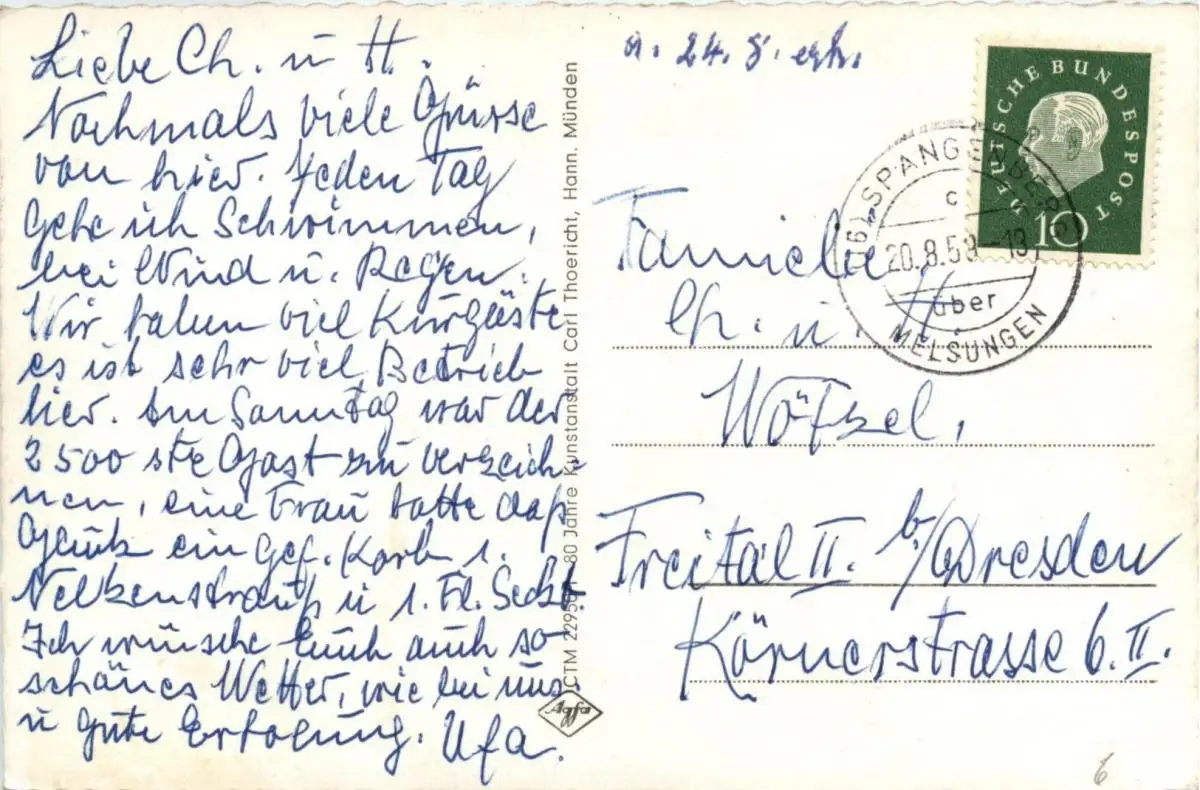 Liebe Ch. u H.
Nochmals viele Grüsse
von hier. Jeden Tag
gehe ich Schwimmen,
bei Wind u. Regen.
Wir haben viel Kurgäste
es ist sehr viel Betrieb
hier. Am Sonntag war der
2500 ste Gast zu verzeich-
nen, eine Frau hatte daß
Glück ein gef. Korb 1.
Nelkenstrauß u 1. Fl. Sekt
Ich wünsche Euch auch so
schönes Wetter, wie bei uns
u gute Erholung. Ufa.
CTM 80 Jahre Kunstanstalt Carl Thoericht, Hann. Münden
Agfa
a. 24. 8. erh.
DEUTSCHE BUNDESPOST
10
(16) SPANGENBERG
c
20.8.59-18
über
MELSUNGEN
Familie
Ch. u. H.
Wötzel,
Freital II. b/Dresden
Körnerstrasse 6. II.
6